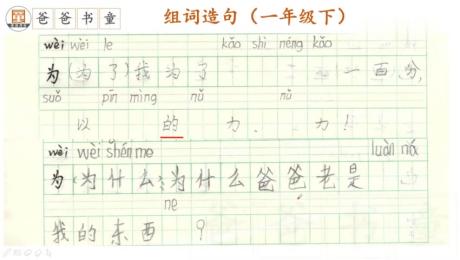 爸爸书童
组词造句（一年级下）
wèi wèi le kǎo shì néng kǎo
为(为了)我为了 一百分,
suǒ pīn mìng nǔ nǔ
以 的 力. 力!
wèi wèi shén me luàn ná
为(为什么)为什么爸爸老是
ne
我的东西?